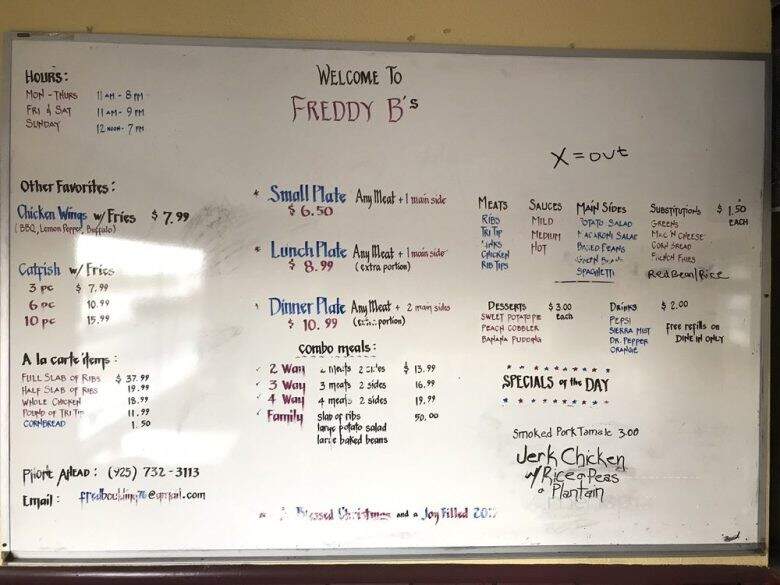 WELCOME TO
FREDDY B's
HOURS:
MON - THURS 11 AM - 8 PM
FRI & SAT 11 AM - 9 PM
SUNDAY 12 NOON - 7 PM
X = out
Other Favorites:
Chicken Wings w/ Fries $ 7.99
(BBQ, Lemon Pepper, Buffalo)
Catfish w/ Fries
3 pc $ 7.99
6 pc 10.99
10 pc 15.99
A la carte items:
FULL SLAB OF RIBS $ 37.99
HALF SLAB OF RIBS 19.99
WHOLE CHICKEN 18.99
POUND OF TRI TIP 11.99
CORNBREAD 1.50
PHONE AHEAD: (925) 732-3113
Email: @gmail.com
* Small Plate Any Meat + 1 main side
$ 6.50
* Lunch Plate Any Meat + 1 main side
$ 8.99 (extra portion)
* Dinner Plate Any Meat + 2 main sides
$ 10.99 (extra portion)
combo meals:
✓ 2 Way 2 meats 2 sides $ 13.99
✓ 3 Way 3 meats 2 sides 16.99
✓ 4 Way 4 meats 2 sides 19.99
✓ Family slab of ribs 50.00
large potato salad
large baked beans
MEATS
RIBS
TRI TIP
LINKS
CHICKEN
RIB TIPS
SAUCES
MILD
MEDIUM
HOT
MAIN SIDES
POTATO SALAD
MACARONI SALAD
BAKED BEANS
GREEN BEANS
SPAGHETTI
SUBSTITUTIONS $ 1.50
EACH
GREENS
MAC N CHEESE
CORN BREAD
FRENCH FRIES
Red Bean/Rice
DESSERTS $ 3.00
each
SWEET POTATO PIE
PEACH COBBLER
BANANA PUDDING
DRINKS $ 2.00
PEPSI
SIERRA MIST
DR. PEPPER
ORANGE
free refills on
DINE IN ONLY
SPECIALS of the DAY
Smoked Pork Tamale 3.00
Jerk Chicken
w/ Rice & Peas
& Plantain
Blessed Christmas and a Joy Filled